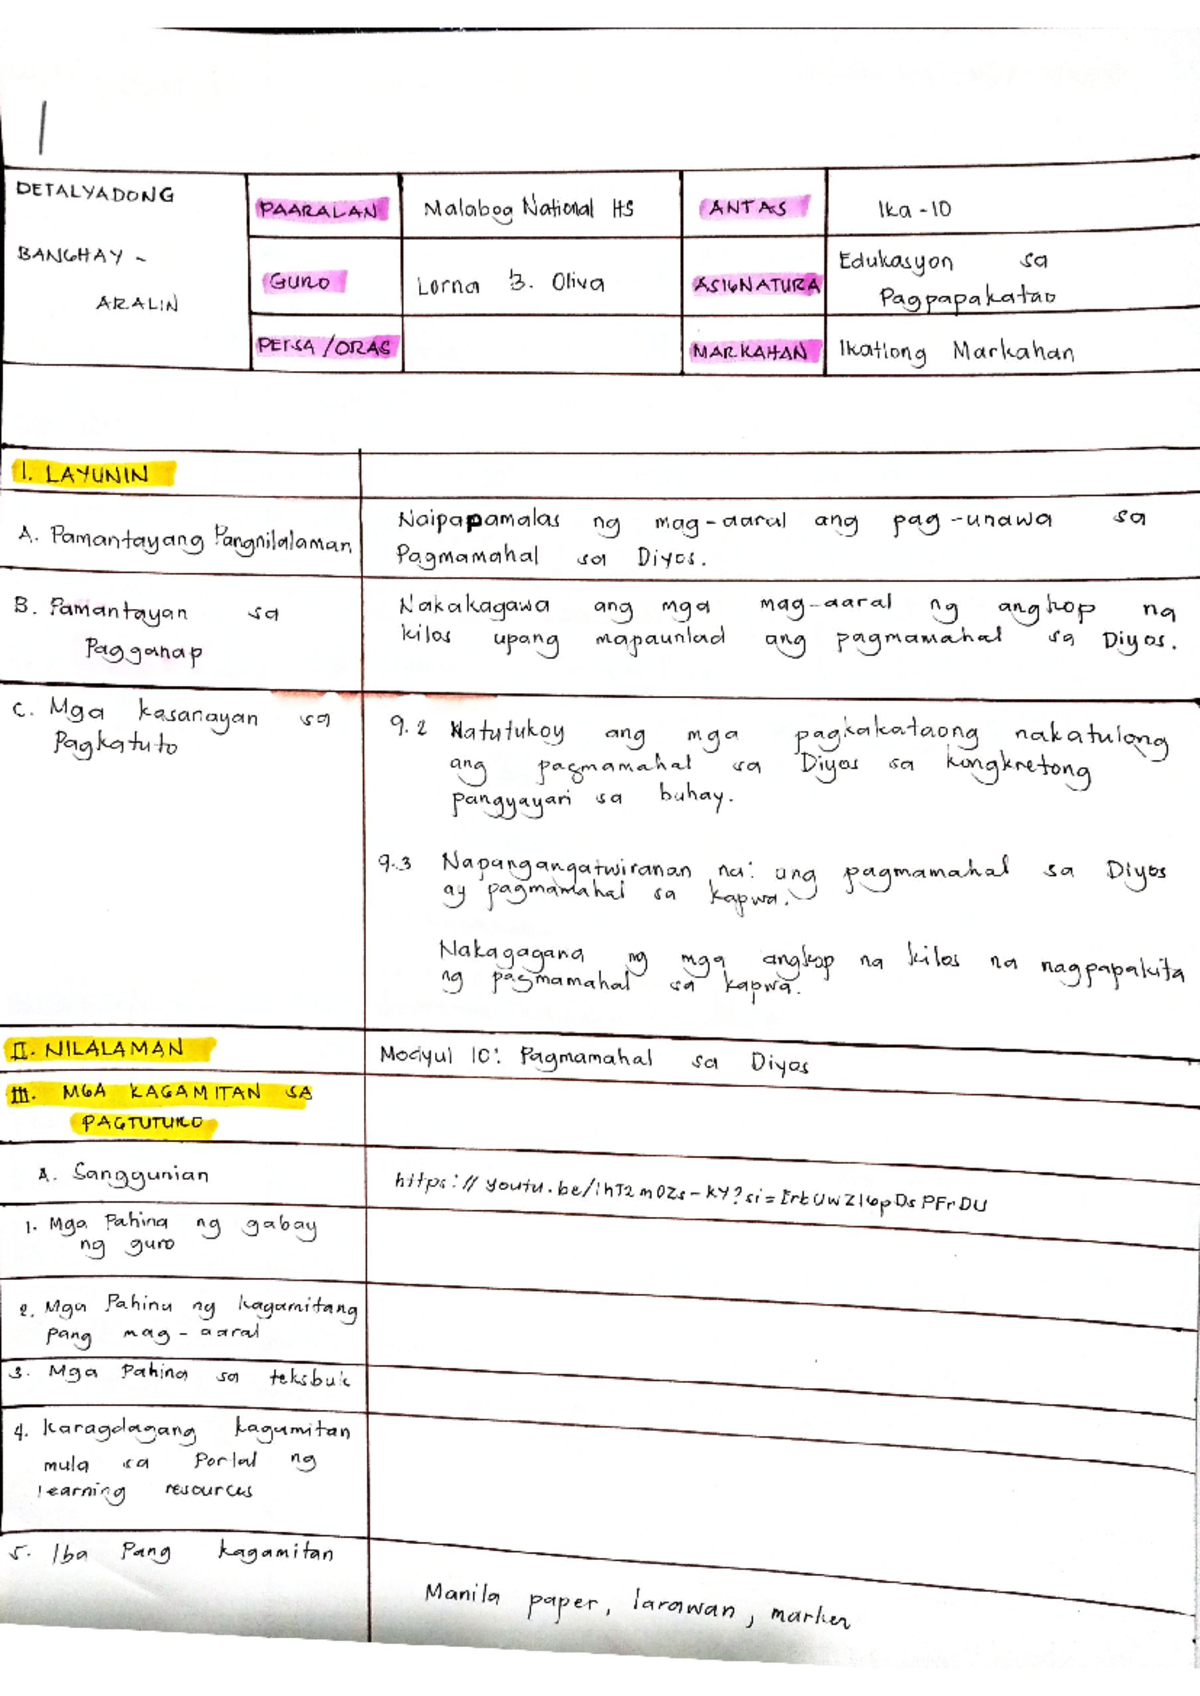 DETALYADONG
BANGHAY-
ARALIN
PAARALAN
Malabog National HS
ANTAS
Ika-10
GURO
Lorna B. Oliva
ASIGNATURA
Edukasyon sa
Pagpapakatao
PETSA/ORAS
MARKAHAN
Ikatlong Markahan
I. LAYUNIN
A. Pamantayang Pangnilalaman
Naipapamalas ng mag-aaral ang pag-unawa sa
Pagmamahal sa Diyos.
B. Pamantayan sa
Pagganap
Nakakagawa ang mga mag-aaral ng angkop na
kilos upang mapaunlad ang pagmamahal sa Diyos.
C. Mga kasanayan sa
Pagkatuto
9.2 Natutukoy ang mga pagkakataong nakatulong
ang pagmamahal sa Diyos sa kongkretong
pangyayari sa buhay.
9.3 Napangangatwiranan na: ang pagmamahal sa Diyos
ay pagmamahal sa kapwa.
Nakagagana ng mga angkop na kilos na nagpapakita
ng pagmamahal sa kapwa.
II. NILALAMAN
Modyul 10: Pagmamahal sa Diyos
III. MGA KAGAMITAN SA
PAGTUTURO
A. Sanggunian
1. Mga Pahina ng gabay
ng guro
2. Mga Pahina ng kagamitang
pang mag-aaral
3. Mga Pahina sa teksbuk
4. Karagdagang kagamitan
mula sa Portal ng
learning resources
5. Iba Pang kagamitan
Manila paper, larawan, marker